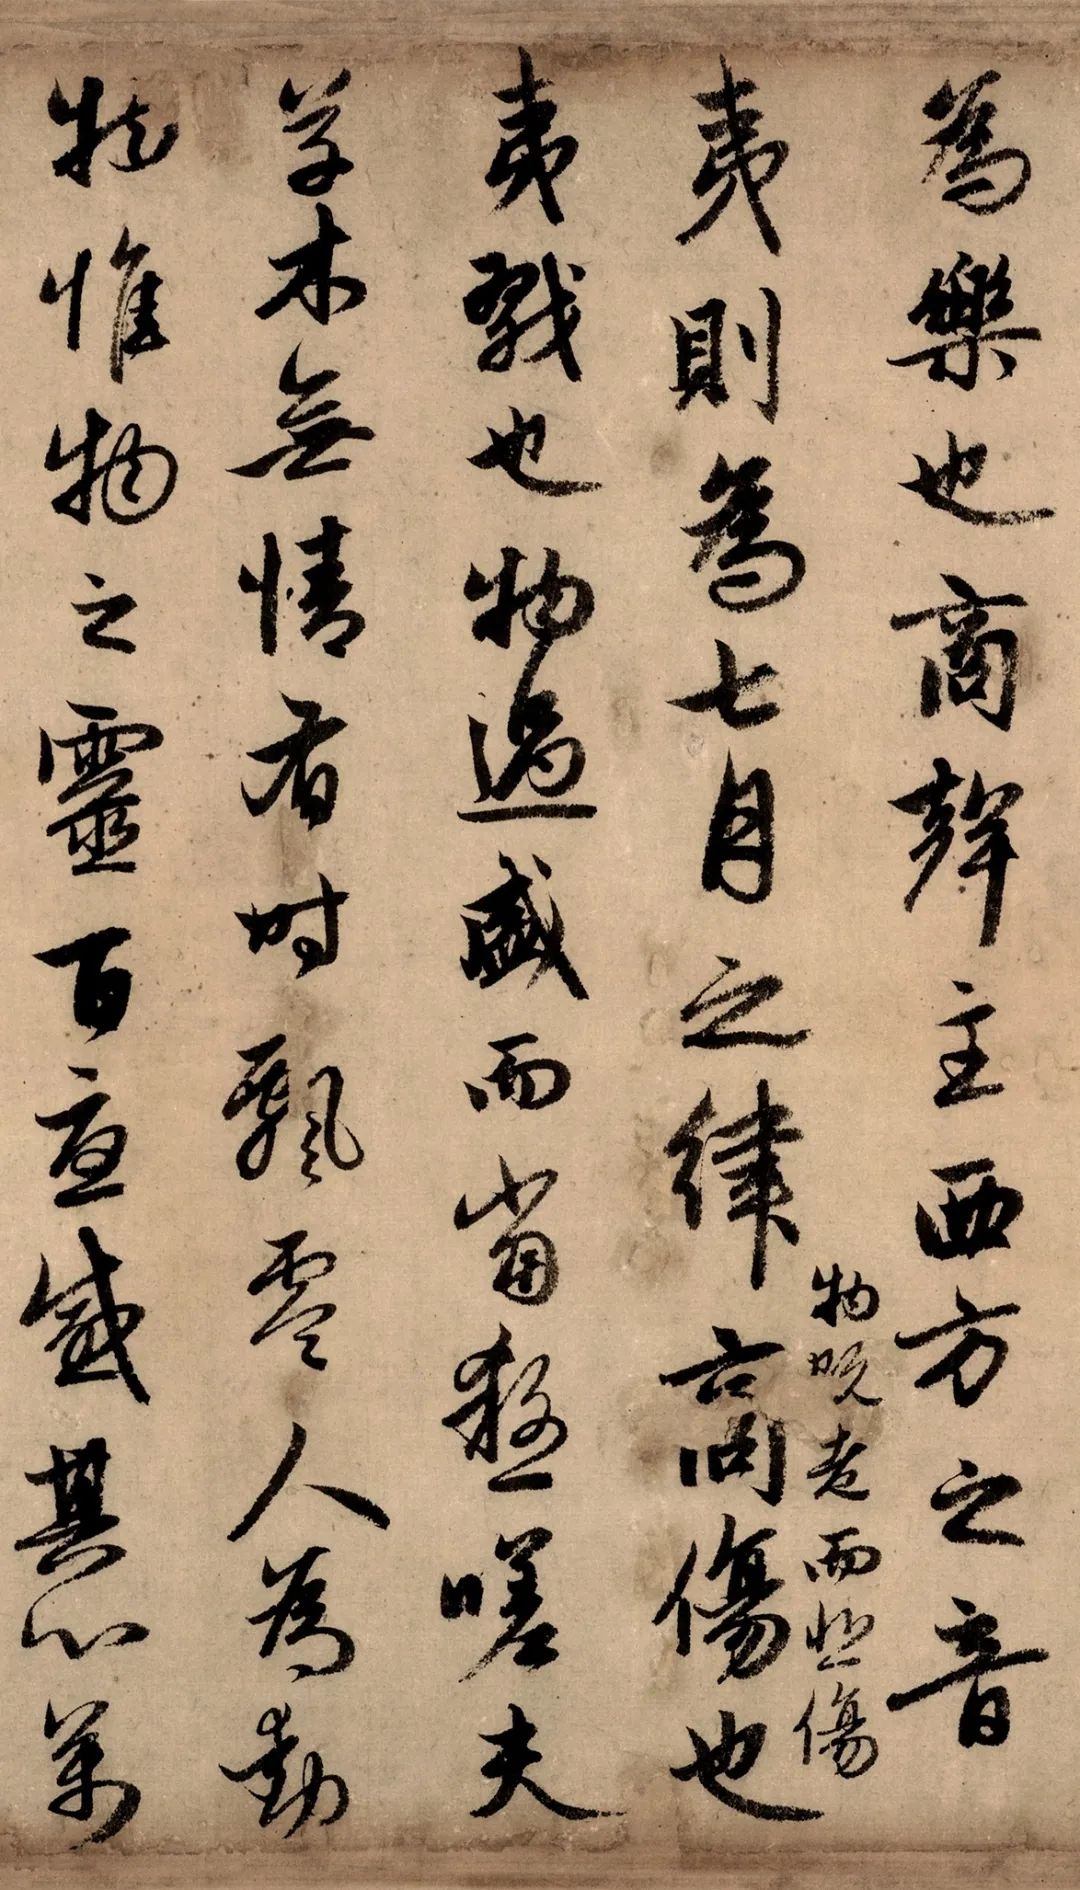 為樂也商聲主西方之音
夷則為七月之律商傷也
物既老而悲傷
夷戮也物過盛而當殺嗟夫
草木無情有時飄零人為動
物惟物之靈百憂感其心萬